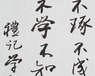 不琢不成
不学不知
禮記学